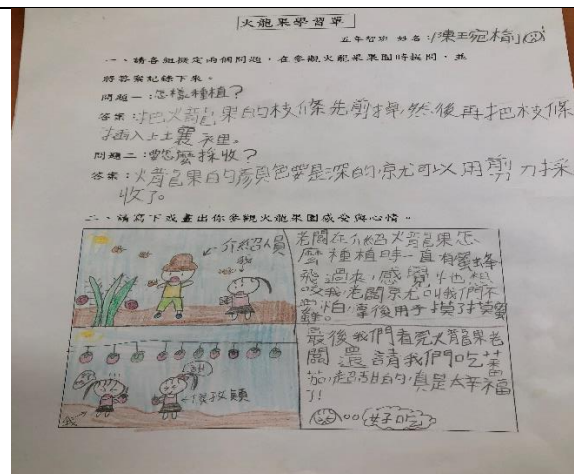 火龍果學習單
五年哲班 姓名：陳王宛榆
一、請各組擬定兩個問題，在參觀火龍果果園時提問，並
將答案紀錄下來。
問題一：怎樣種植？
答案：把火龍果的枝條先剪掉，然後再把枝條
插入土壤裡。
問題二：要怎麼採收？
答案：火龍果的顏色要是深的，就可以用剪刀採
收了。
二、請寫下或畫出你參觀火龍果園感受與心情。
介紹人員
我
老闆在介紹火龍果怎
麼種植時一直有蜜蜂
飛過來，感覺他想
咬我，老闆就叫我們不
怕，拿後用手摸了摸蜜
蜂。
最後我們看完火龍果老
闆還請我們吃茄
茄，超甜的，真是太幸福
了！
好吃
我